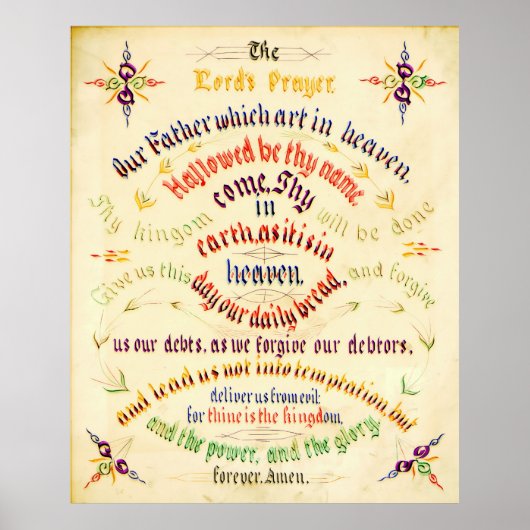 The
Lord's Prayer.
Our Father which art in heaven,
Hallowed be thy name.
Thy kingdom come, Thy will be done
in
earth, as it is in
heaven.
Give us this day our daily bread, and forgive
us our debts, as we forgive our debtors,
and lead us not into temptation, but
deliver us from evil:
for thine is the kingdom,
and the power, and the glory,
forever. Amen.